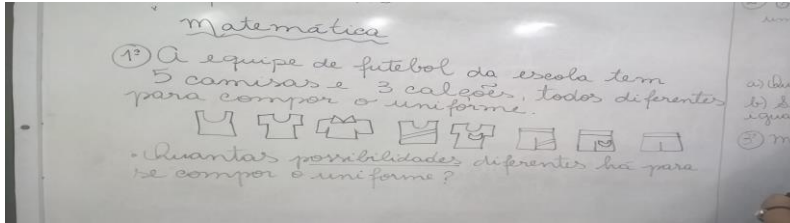 Matemática
1º) A equipe de futebol da escola tem
5 camisas e 3 calções, todos diferentes
para compor o uniforme.
• Quantas possibilidades diferentes há para
se compor o uniforme?
a)
b)
igua
3º) m